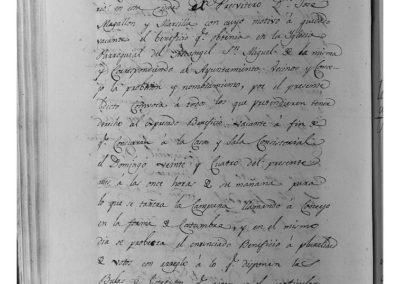 en esta Ciudad el Presvitero Dn. Josè
Magallon y Marcilla con cuyo motivo à quedado
vacante el beneficio qe. obtenia en la Iglesia
Parroquial del Arcangel Sn. Miguel de la misma
y Correspondiendo al Ayuntamiento, Vecinos y Conce-
jo la probision y nombramiento, por el presente
Edicto Convoca à todos los que pretendieren tener
drecho al expresado Beneficio Vacante à fin de
qe. Concurran à la Casa y Sala Consistorial
el Domingo veinte y Cuatro del presente
mes à las once horas de su mañana para
lo que se tañera la Campana llamando à Concejo
en la forma de Costumbre, y en el mismo
dia se probeera el enunciado Beneficio à pluralidad
de votos con arreglo à lo qe. disponen las
Bulas